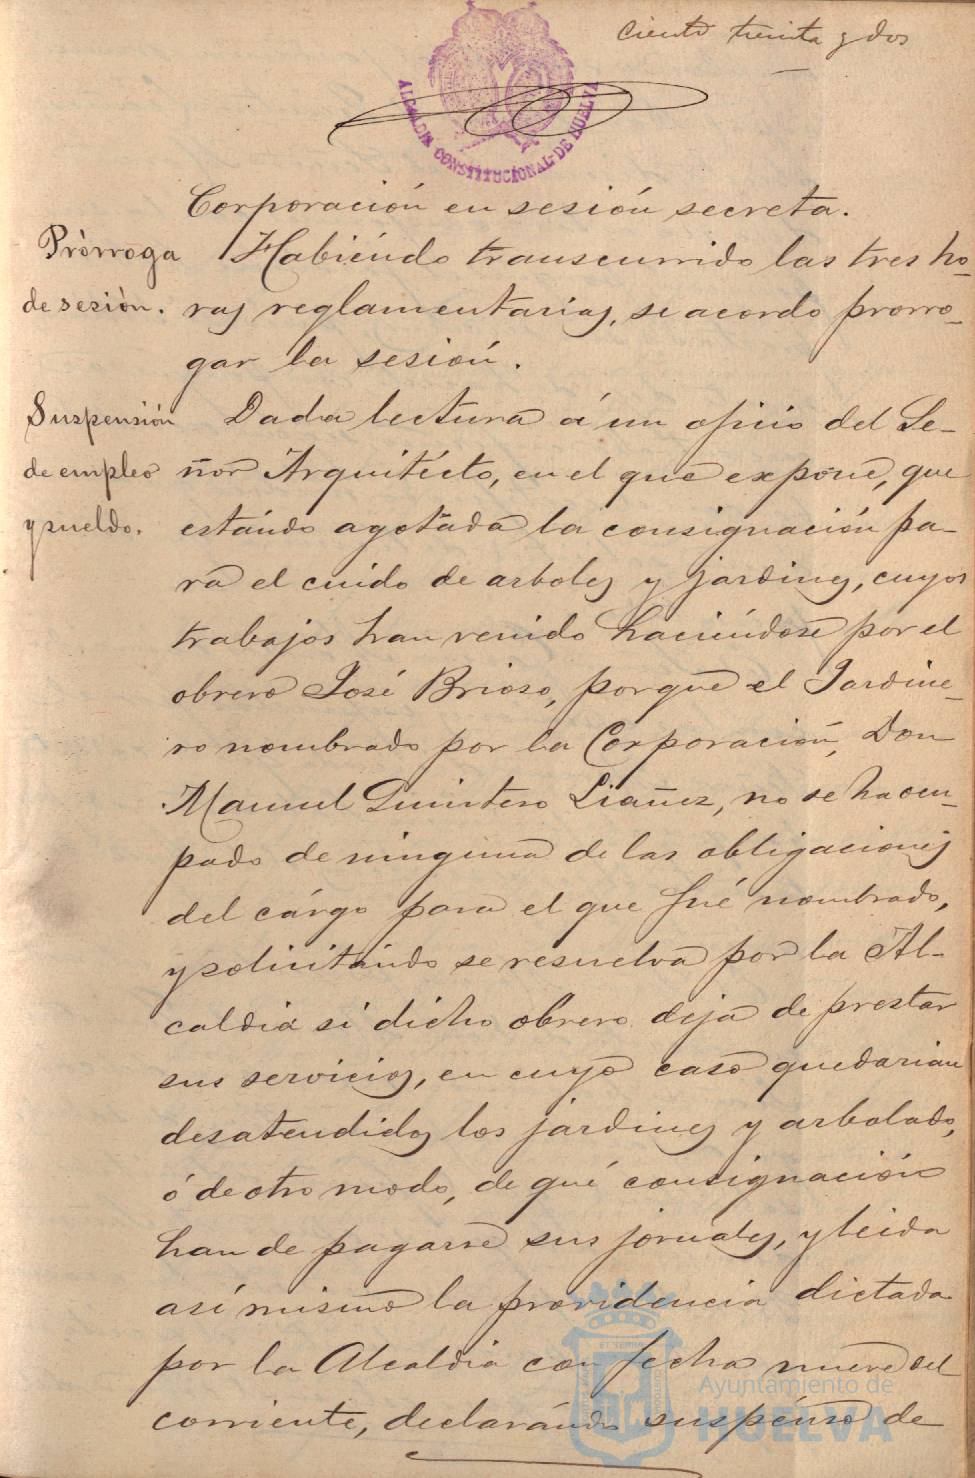 ciento treinta y dos
ALCALDIA CONSTITUCIONAL DE HUELVA
Corporación en sesión secreta.
Prórroga
de sesión.
Habiéndo transcurrido las tres ho-
ras reglamentarias, se acordo prorro-
gar la sesión.
Suspensión
de empleo
y sueldo.
Dada lectura á un oficio del Se-
ñor Arquitécto, en el que expone, que
estándo agotada la consignación pa-
ra el cuido de arboles y jardines, cuyos
trabajos han venido haciéndose por el
obrero José Brioso, porque el Jardine-
ro nombrado por la Corporación, Don
Manuel Quintero Liañez, no se ha ocu-
pado de ninguna de las obligaciones
del cárgo para el que fué nombrado,
y solicitándo se resuelva por la Al-
caldia si dicho obrero deja de prestar
sus servicios, en cuyo caso quedarian
desatendidos los jardines y arbolado,
ó de otro modo, de qué consignación
han de pagarse sus jornales, y leida
así mismo la providencia dictada
por la Alcaldia con fecha nueve del
corriente, declarándo suspénso de
Ayuntamiento de
HUELVA